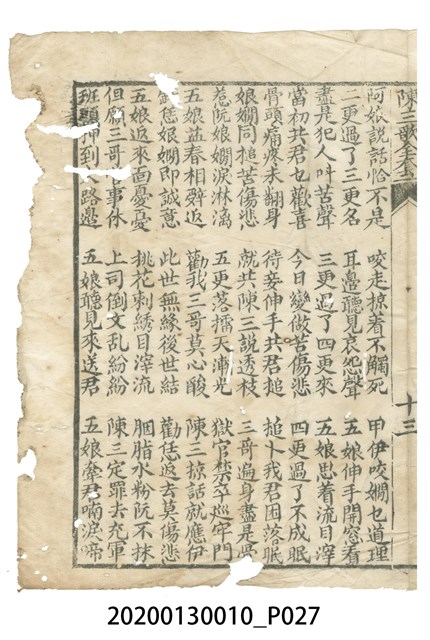 陳三歌全本
十三
阿娘說話恰不是 咬走掠着不觸死 甲伊咬嫺乜道理
二更過了三更名 耳邊聽見哀怨聲 五娘伸手開窓看
盡是犯人叫苦聲 三更過了四更來 五娘思着流目滓
當初共君乜歡喜 今日變做苦傷悲 四更過了不成眠
骨頭痛疼未翻身 待妾伸手共君搥 搥卜我君困落眠
娘嫺同搥苦傷悲 就共陳三說透枝 三哥遍身盡是
惹阮娘嫺淚淋漓 五更落擂天漸光 獄官禁卒巡牢門
五娘益春相辤返 勸我三哥莫心酸 陳三掠話就應伊
恁娘嫺即誠意 此世無緣後世結 勸恁返去莫傷悲
五娘返來面憂憂 桃花刺綉目滓流 胭脂水粉阮不抹
但願三哥事休 上司倒文乱紛紛 陳三定罪去充軍
班頭押到路邊 五娘聽見來送君 五娘牽君啼
20200130010_P027